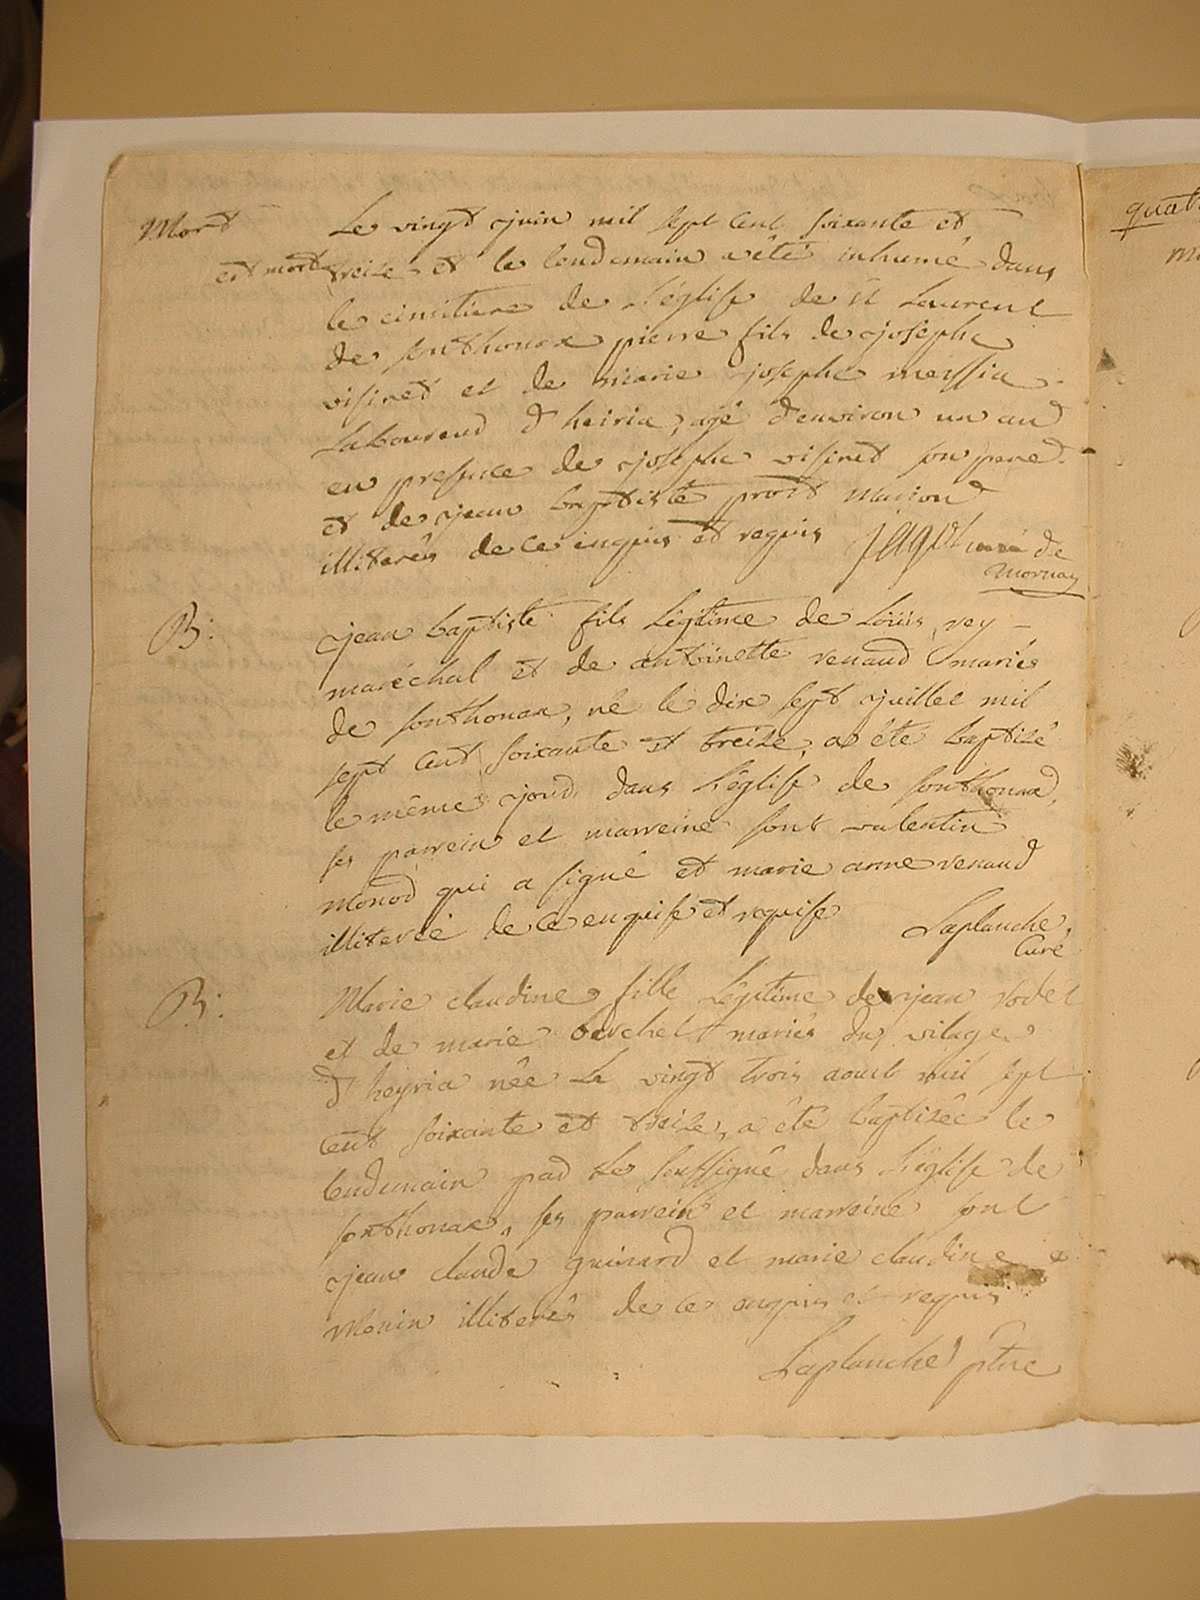 Mort Le vingt juin mil sept cent soixante et
est mort treize et le lendemain a été inhumé dans
le cimitiere de L'église de st Laurent
de sonthonax pierre fils de josephe
visined et de marie josephe messia
Laboureud d'heiria, agé d'environ un and
en presence de josephe visined son pere
et de jean baptiste prost Marion
illiterés de ce enquis et requis jagot curé de
Mornay
B: jean baptiste fils Légitime de Loüis rey
maréchal et de antoinette renaud mariés
de sonthonax, né le dix sept juillet mil
sept cent soixante et treize, a été baptizé
le même jour dans L'église de sonthonax,
ses parrein et marreine sont valentin
monod qui a signé et marie anne renaud
illiterée de ce enquise et requise Laplanche,
Curé
B: Marie claudine fille Légitime de jean Rodet
et de marie berchet mariés du vilage
d'heyria née Le vingt trois aout mil sept
cent soixante et treize, a été baptizée le
lendemain pad Le soussigné dans L'église de
sonthonax, ses parrein et marreine sont
jean claude guinard et marie claudine
Monin illiterés de ce enquis et requis
Laplanche ptre
quat